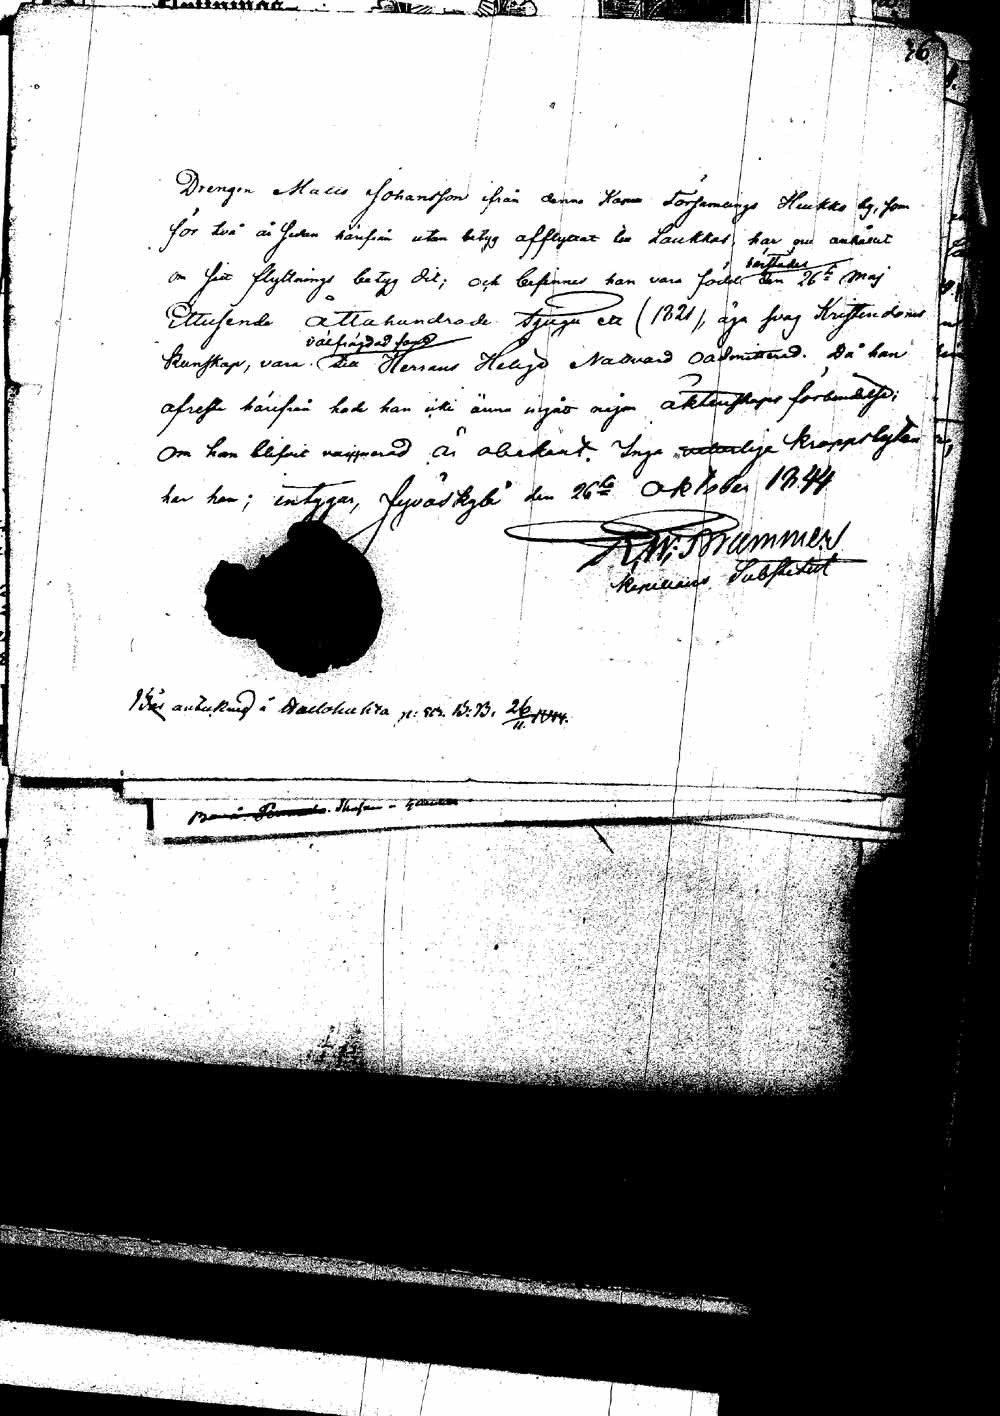 46
Drengen Matts Johansson ifrån denna Församlings Huikko by, som
för två år sedan härifrån utan betyg afflyttat till Laukkas, har nu anhållit
om sitt flyttnings betyg dit; och befinnes han vara född den 26te Maj
Ettusende åttahundrade tjugu ett (1821), äga svag Kristendoms
kunskap, vara till Herrans Heliga Nattvard oadmitterad. Då han
afreste härifrån hade han icke ännu ingått någon äktenskaps förbindelse;
om han blifvit vaccinerad är obekant. Inga kroppslyten
har han; intygar, Jyväskylä den 26te Oktober 1844
Kapellans Substitut
26/11 1844.